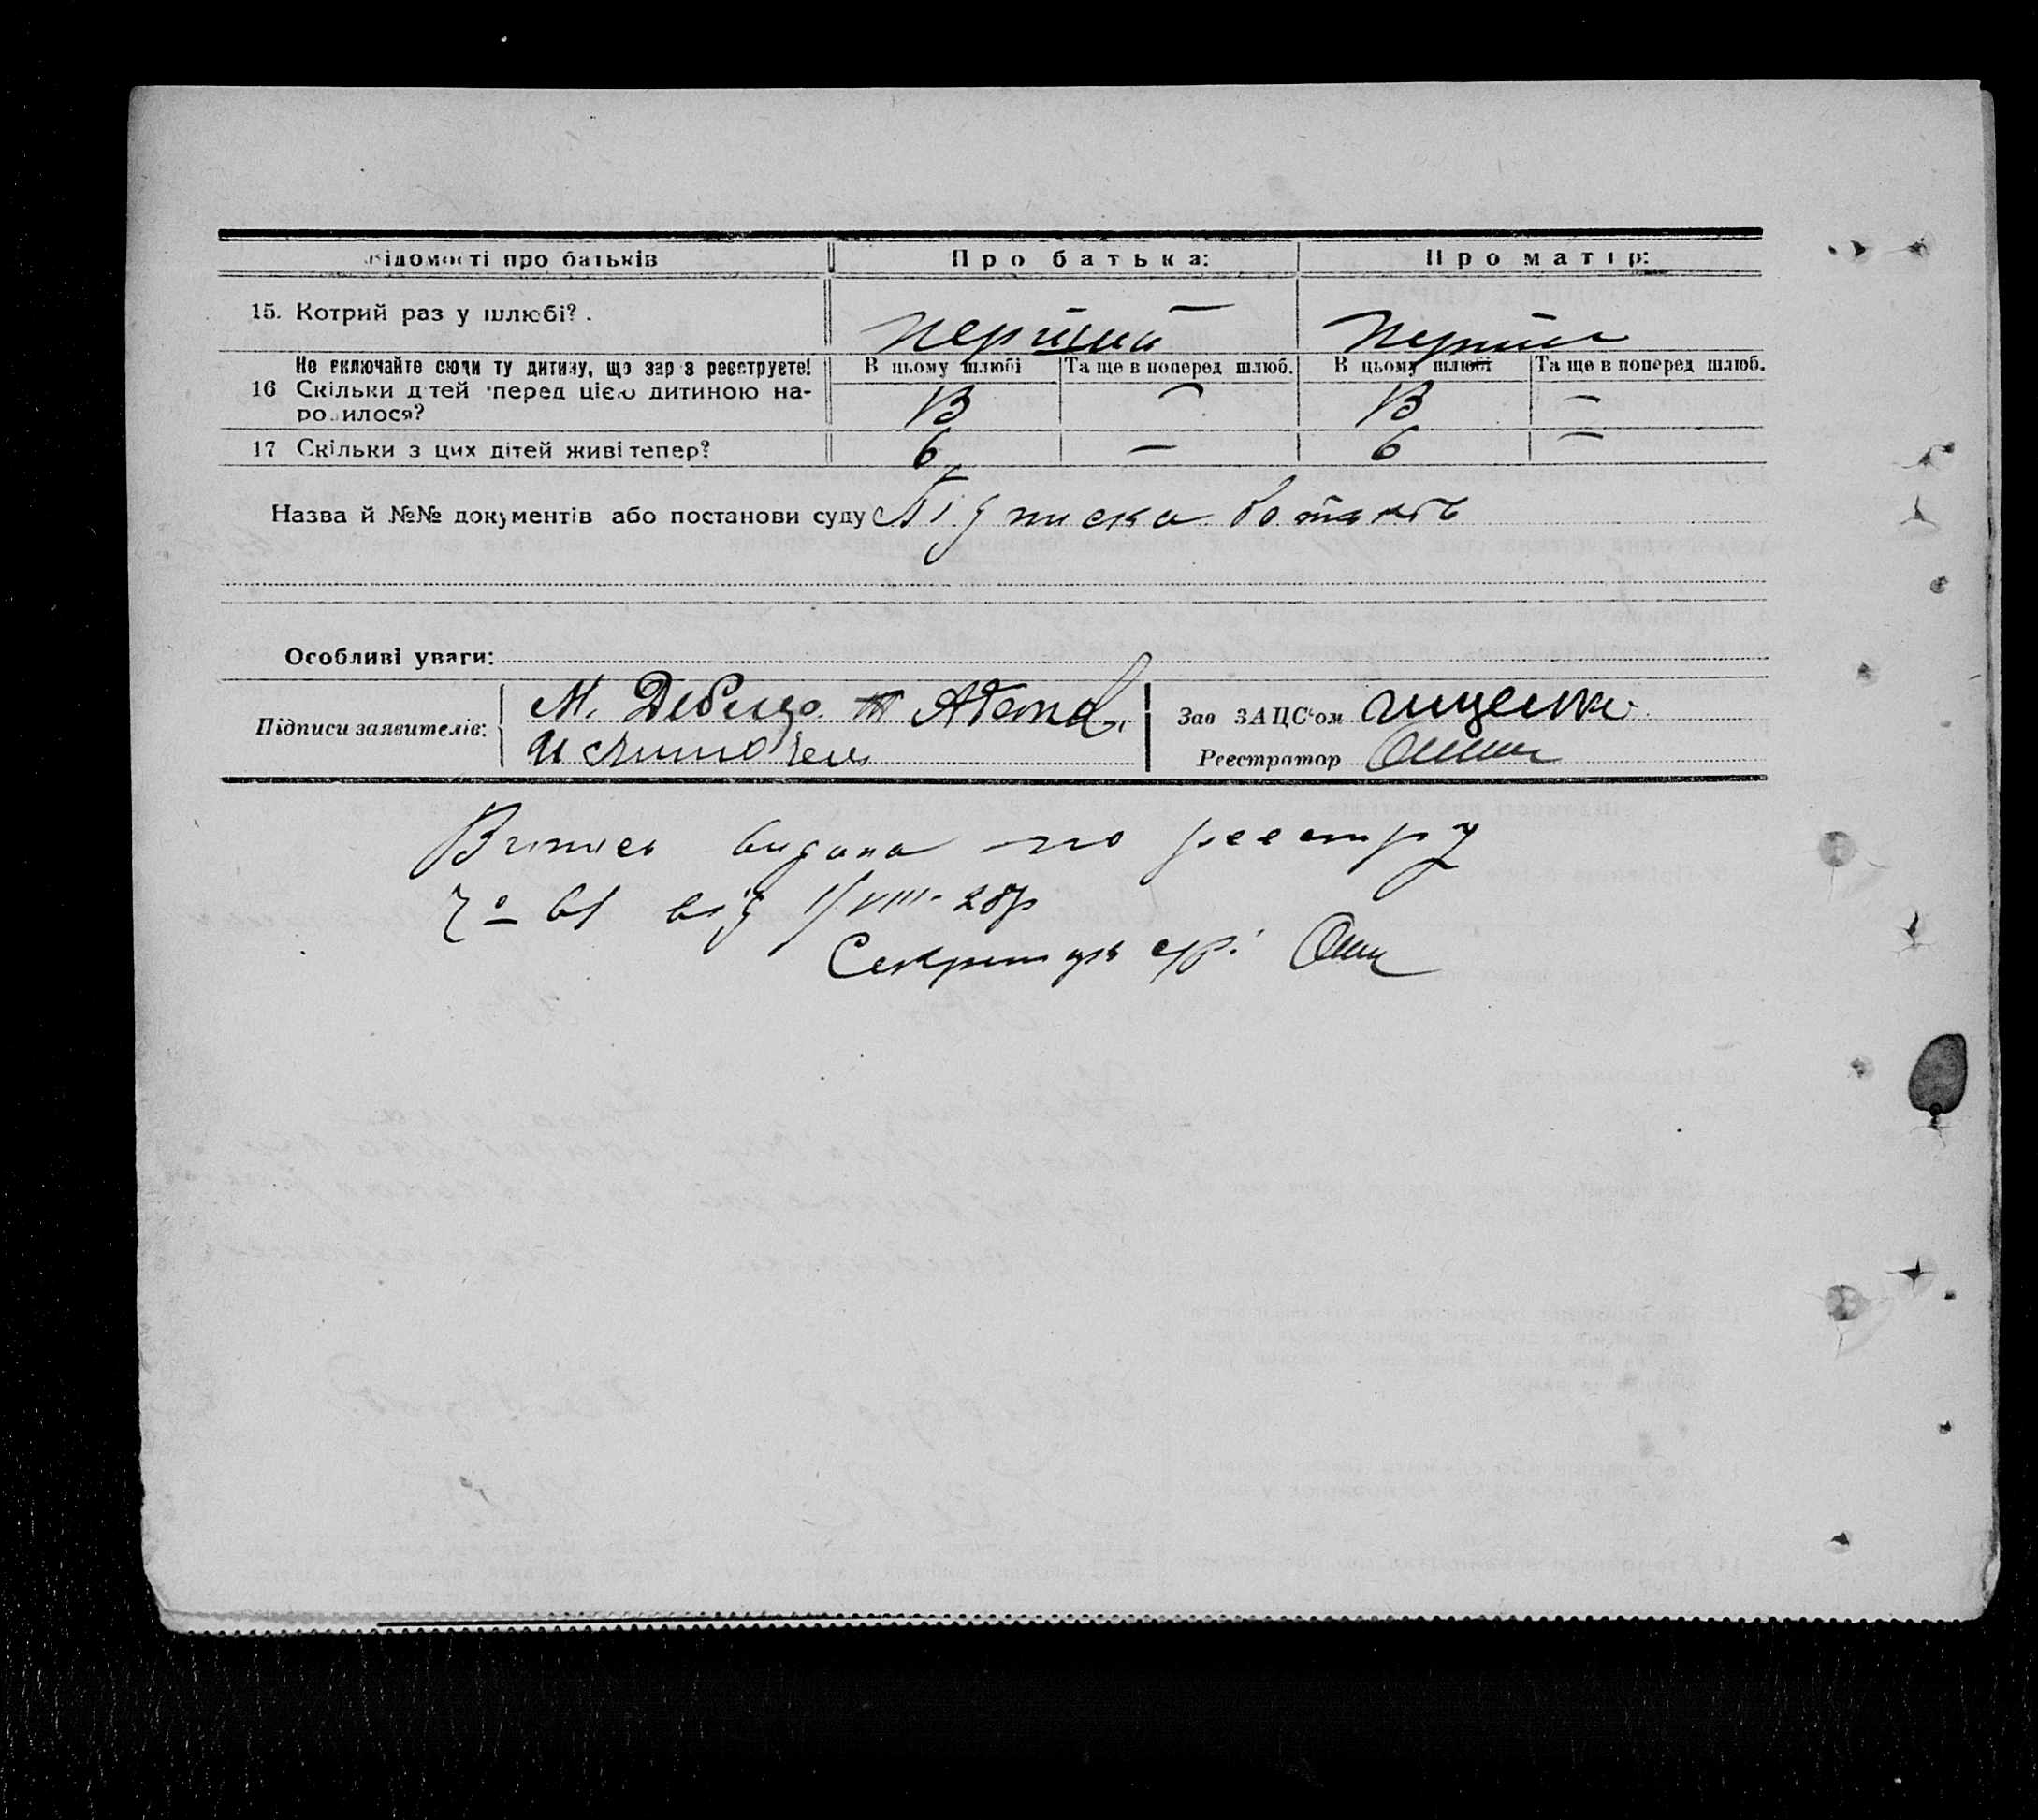 Відомості про батьків
Про батька:
Про матір:
15. Котрий раз у шлюбі?.
перший
перший
Не включайте сюди ту дитину, що зараз реєструєте!
В цьому шлюбі
Та ще в поперед шлюб.
В цьому шлюбі
Та ще в поперед шлюб.
16 Скільки дітей перед цією дитиною на-
родилося?
13 — 13 —
17 Скільки з цих дітей живі тепер?
6 — 6 —
Назва й №№ документів або постанови суду Підписка батьків
Особливі уваги:
Підписи заявителів:
М.
Зав ЗАЦС'ом
Реєстратор
Випись видана по реєстру
від 1/VIII-28р
Секретар с/р.